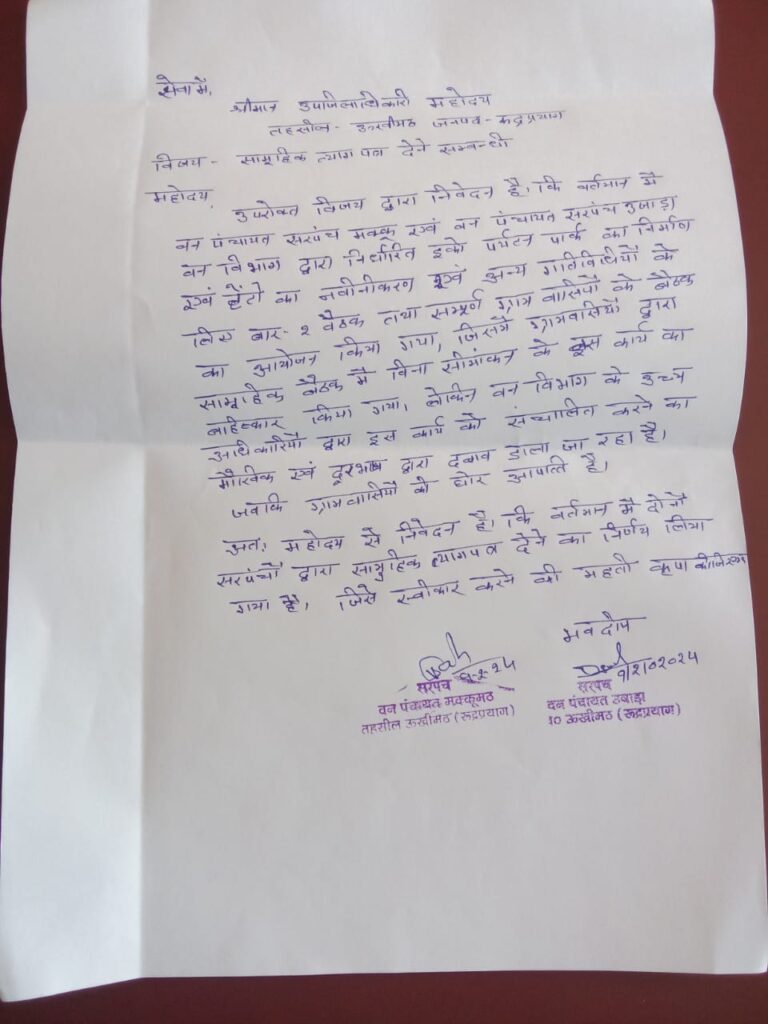 सेवा में,
श्रीमान उपजिलाधिकारी महोदय
तहसील - ऊखीमठ जनपद - रूद्रप्रयाग
विषय - सामूहिक त्याग पत्र देने सम्बन्धी
महोदय,
उपरोक्त विषय द्वारा निवेदन है। कि वर्तमान मे
वन पंचायत सरपंच मक्कू एवं वन पंचायत सरपंच
वन विभाग द्वारा निर्धारित इको पर्यटन पार्क का निर्माण
एवं हटो का नवीनीकरण एवं अन्य गतिविधियों के
लिए बार-२ बैठक तथा सम्पूर्ण ग्राम वासियों के बैठक
का आयोजन किया गया, जिसमें ग्रामवासियों द्वारा
सामूहिक बैठक मे विना सीमांकन के इस कार्य का
बाहिष्कार किया गया। लेकिन वन विभाग के उच्च
अधिकारियों द्वारा इस कार्य को संचालित करने का
मौखिक एवं दूरभाष द्वारा दबाव डाला जा रहा है।
जबकि ग्रामवासियों को घोर आपत्ति है।
अतः महोदय से निवेदन है। कि वर्तमान मे दोनो
सरपंचों द्वारा सामुहिक त्यागपत्र देने का निर्णय लिया
गया है। जिसे स्वीकार करने की महती कृपा कीजिएगा
भवदीय
9-2-24
9/2/02024
सरपंच
वन पंचायत मक्कूमठ
तहसील ऊखीमठ (रूद्रप्रयाग)
सरपंच
वन पंचायत
ऊखीमठ (रूद्रप्रयाग)